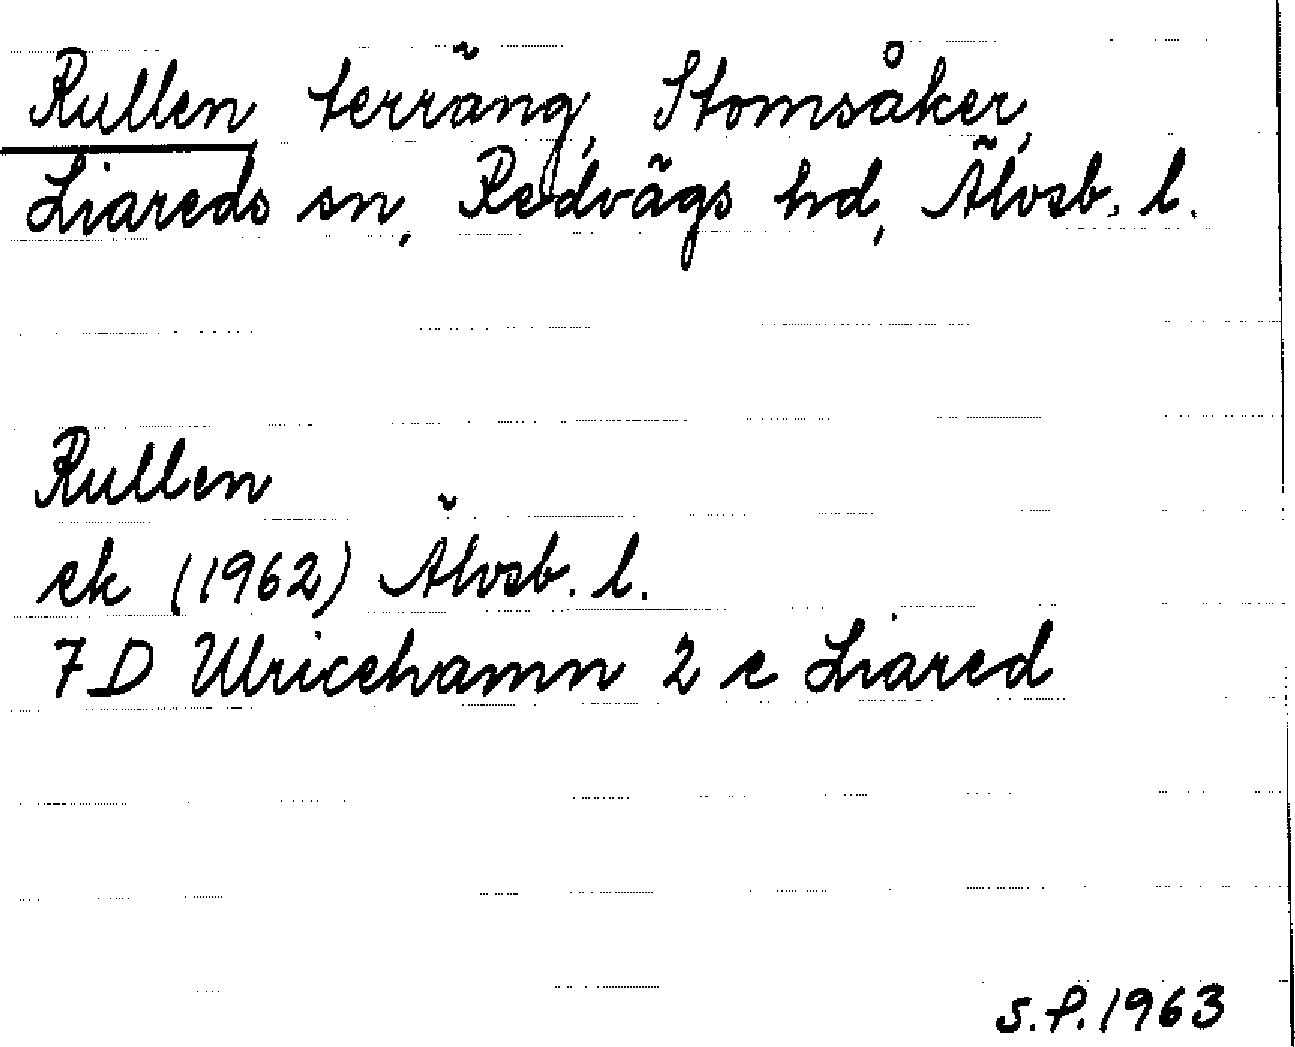 Rullen terräng, Stomsåker,
Liareds sn, Redvägs hd, Älvsb. l.
Rullen
ek (1962) Älvsb. l.
7D Ulricehamn 2 e Liared
S.P. 1963